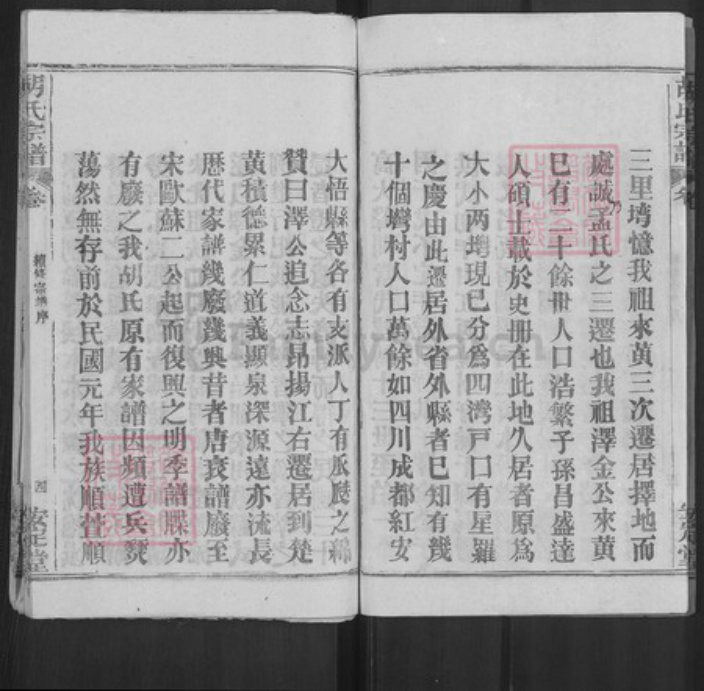 三里塆憶我祖來黃三次遷居擇地而
處誠乃孟氏之三遷也我祖澤金公來黃
已有二十餘世人口浩繁子孫昌盛達
人碩士載於史冊在此地久居者原為
大小两塆現已分爲四灣戸口有星羅
之慶由此遷居外省外縣者已知有幾
十個塆村人口萬餘如四川成都紅安
大悟縣等各有支派人丁有瓜瓞之綿
贊曰澤公追念志昂揚江右遷居到楚
黃積德累仁道義顯泉深源遠亦流長
歷代家譜幾廢幾興昔者唐衰譜廢至
宋歐蘇二公起而復興之明季譜牒亦
有廢之我胡氏原有家譜因頻遭兵燹
蕩然無存前於民國元年我族順
順
胡氏宗譜
卷
續修宗譜序
四
安定堂
胡氏宗譜
卷
安定堂